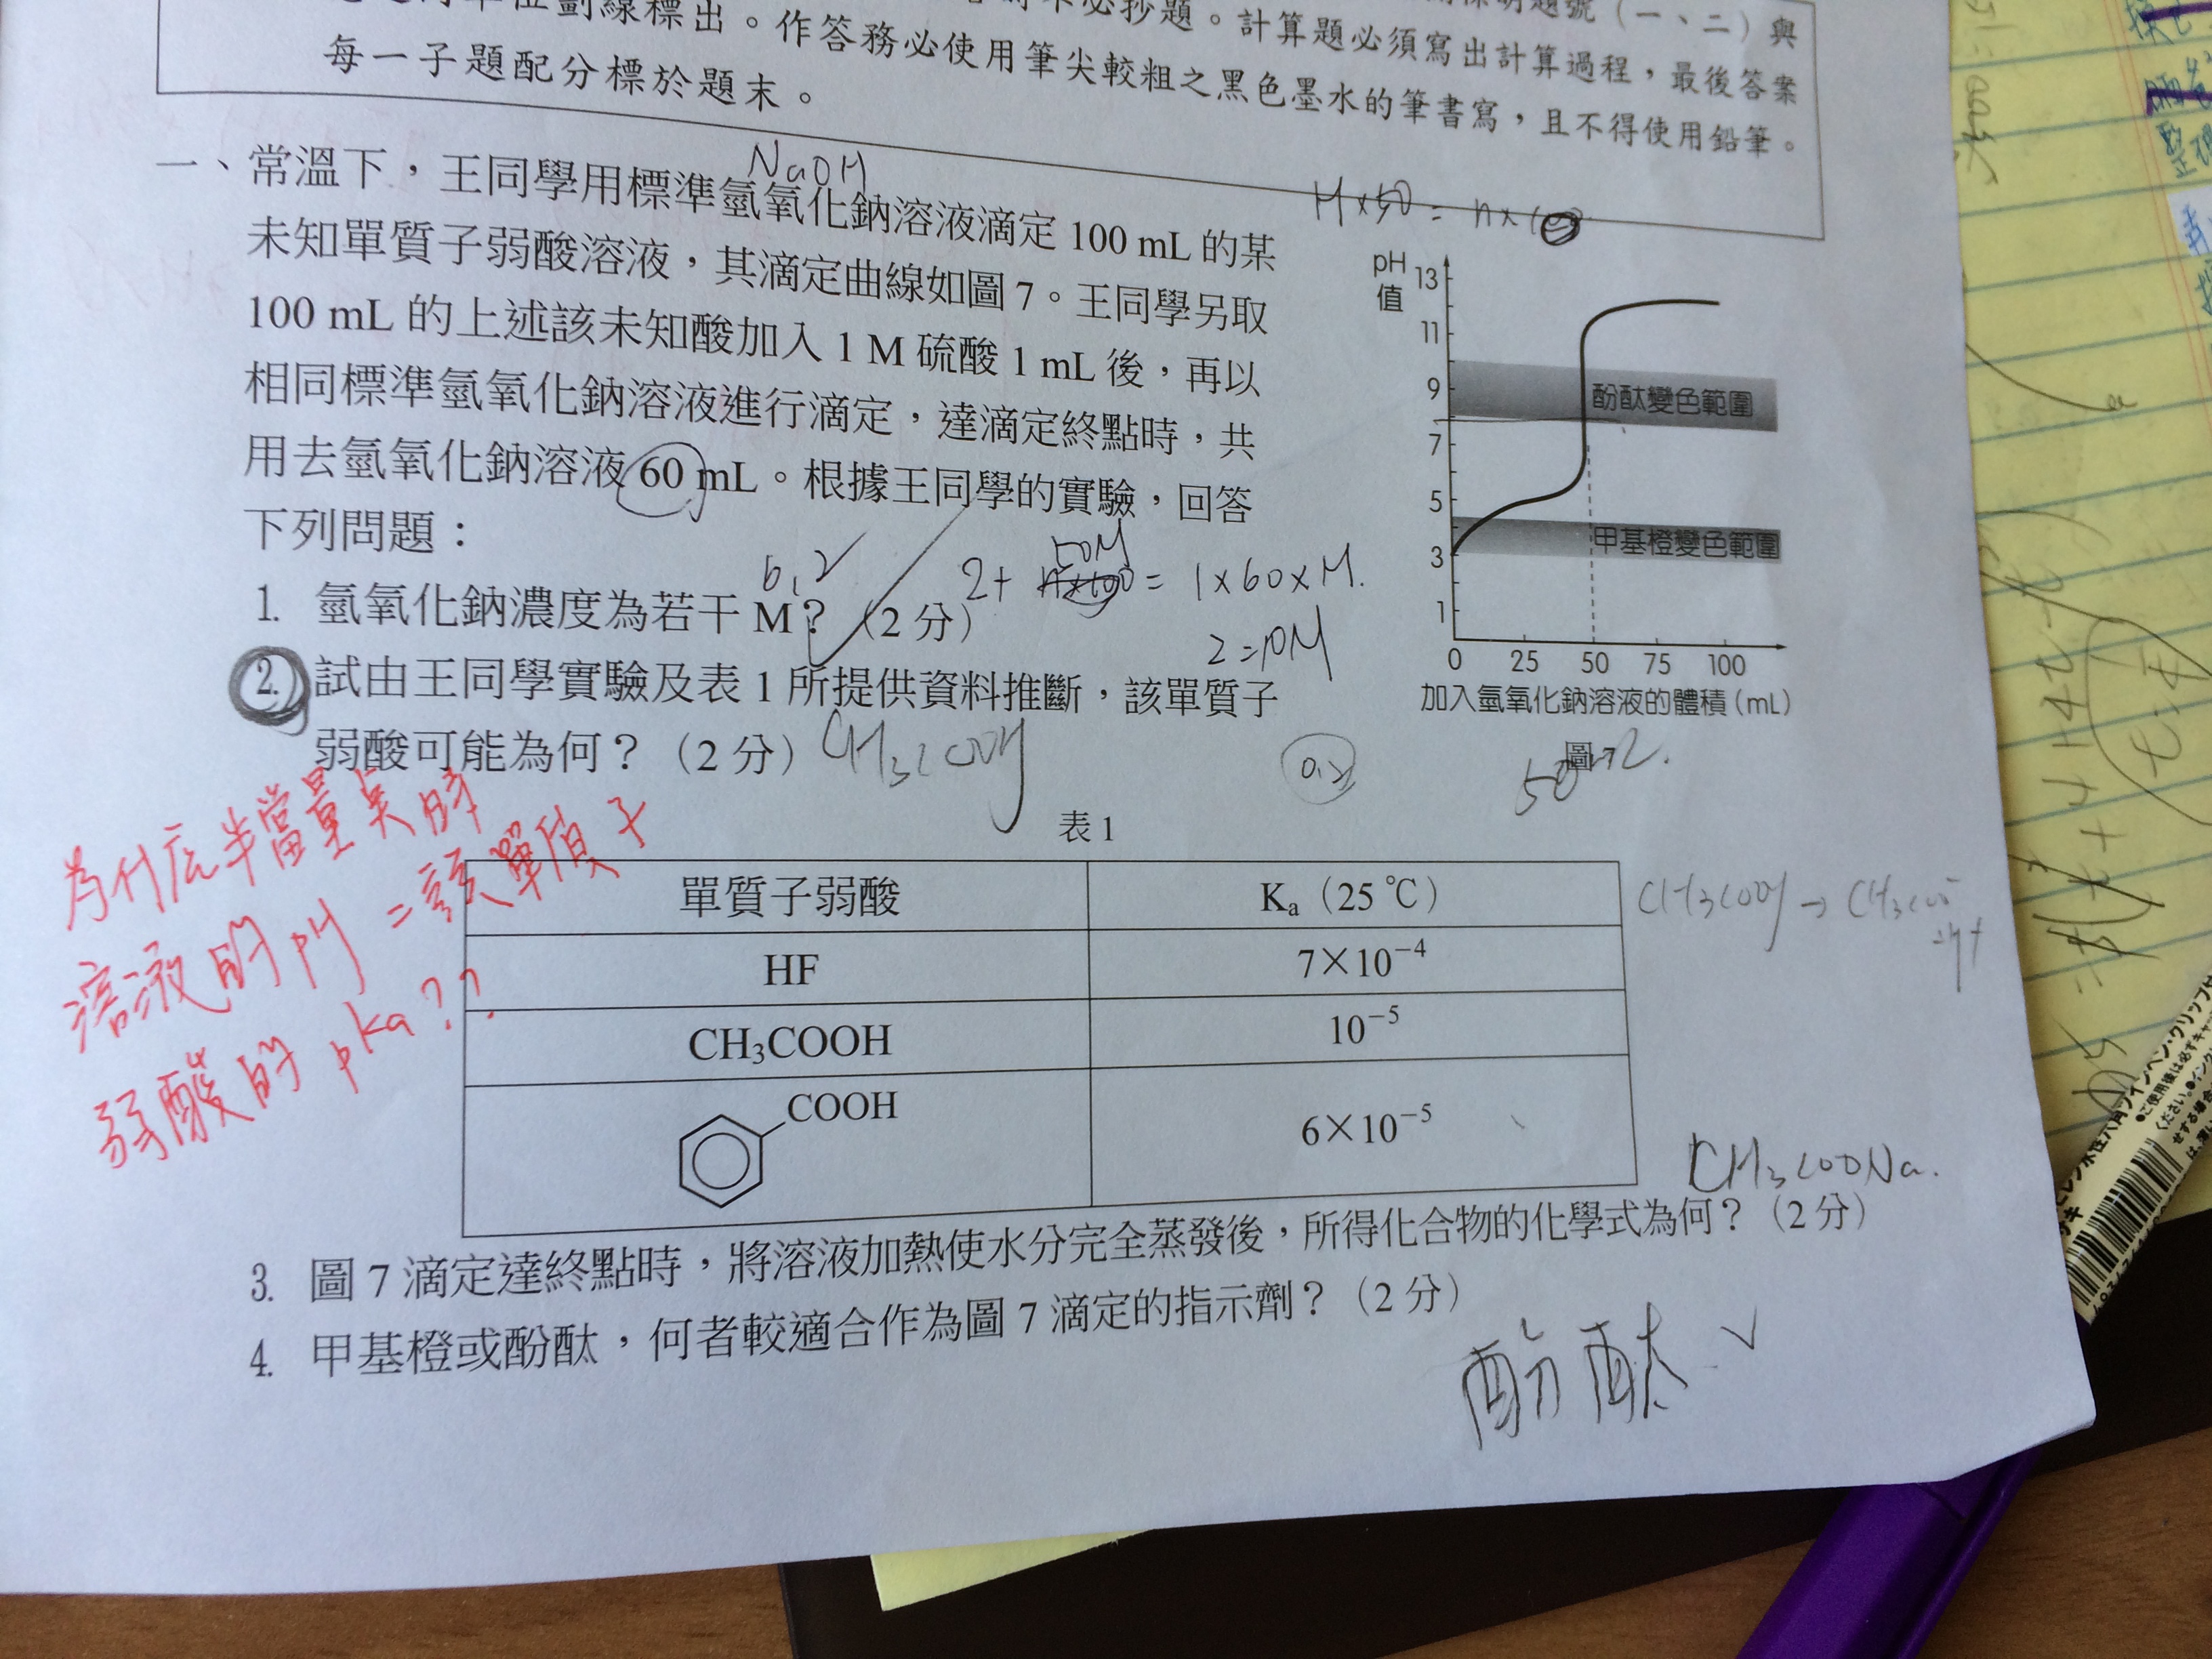 每一子題配分標於題末。作答務必使用筆尖較粗之黑色墨水的筆書寫，且不得使用鉛筆。
劃線標出。 不必抄題。計算題必須寫出計算過程，最後答案
題號（一、二）與
NaOH
一、常溫下，王同學用標準氫氧化鈉溶液滴定 100 mL 的某
未知單質子弱酸溶液，其滴定曲線如圖 7。王同學另取
100 mL 的上述該未知酸加入 1 M 硫酸 1 mL 後，再以
相同標準氫氧化鈉溶液進行滴定，達滴定終點時，共
用去氫氧化鈉溶液 60 mL。根據王同學的實驗，回答
下列問題：
1. 氫氧化鈉濃度為若干 M？（2 分）
2+ 50M = 1×60×M.
2=10M
2. 試由王同學實驗及表 1 所提供資料推斷，該單質子
弱酸可能為何？（2 分）
pH
值
13
11
9
7
5
3
1
酚酞變色範圍
甲基橙變色範圍
0 25 50 75 100
加入氫氧化鈉溶液的體積（mL）
0.2
為什麼半當量點時
溶液的pH = 該單質子
弱酸的 pKa??
表 1
單質子弱酸 Ka（25 ℃）
HF 7×10−4
CH3COOH 10−5
COOH 6×10−5
CH3COONa.
3. 圖 7 滴定達終點時，將溶液加熱使水分完全蒸發後，所得化合物的化學式為何？（2 分）
4. 甲基橙或酚酞，何者較適合作為圖 7 滴定的指示劑？（2 分）
酚酞